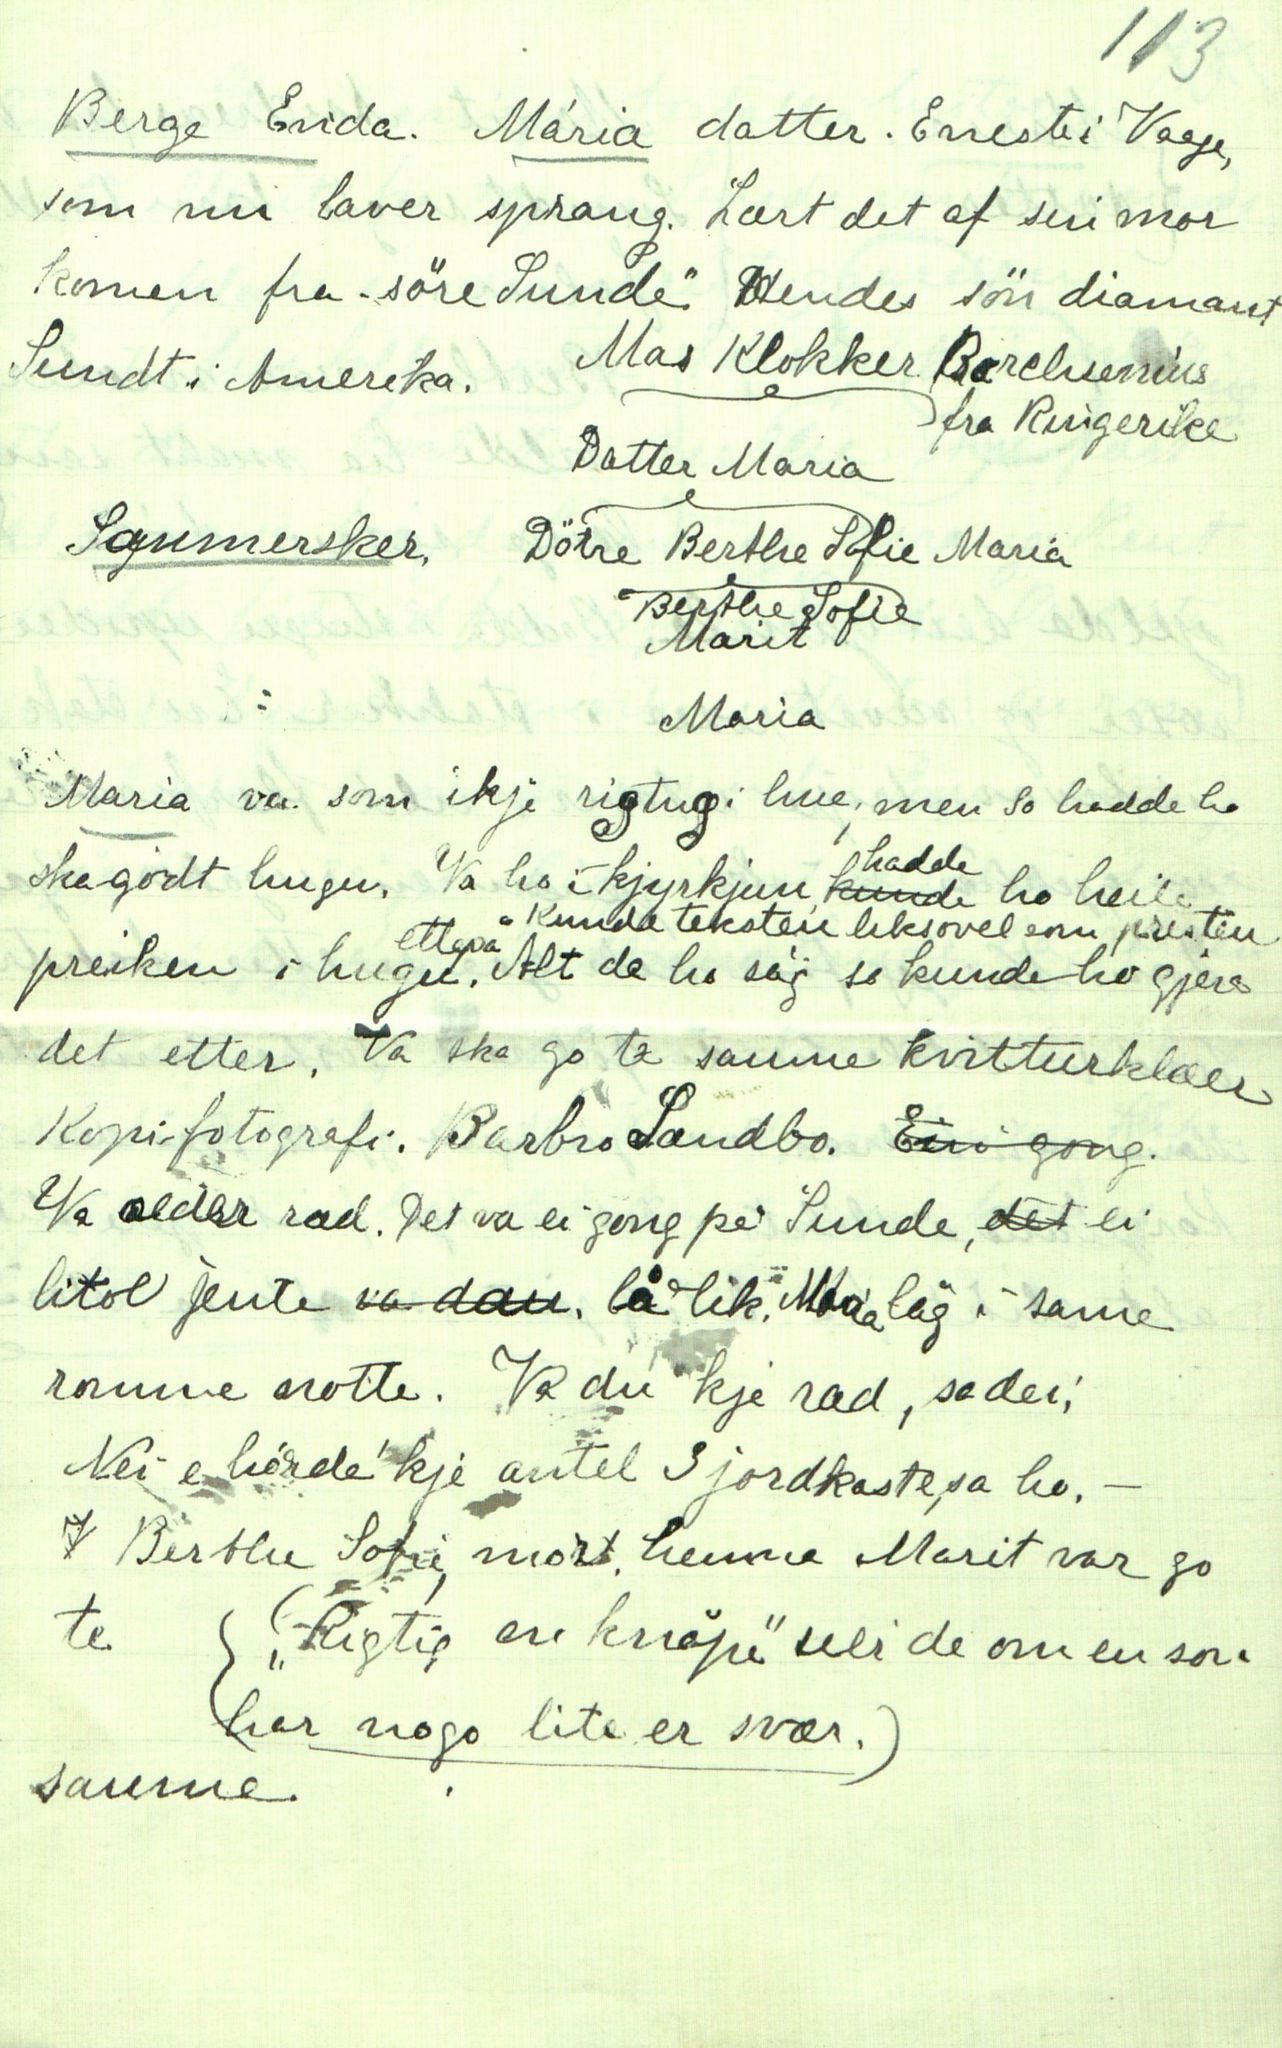 113
Berge Enda. Maria datter. Eneste i Vaage,
som nu laver sprang. Lært det af sin mor
komen fra "söre Sunde". Hendes sön diamant
Sundt i Amereka. Mas Klokker
fra Ringerike
Datter Maria
Saumersker, Dötre Berthe Sofie Maria
Berthe Sofie
Marit
Maria
Maria va som ikje rigtug i hue, men so hadde ho
ska godt hugu. Va ho i kjyrkjun, kunde hadde ho heile
kunda teksten liksovel som presten
preiken i hugu, ettepå. Alt da ho såg so kunde ho gjera
det etter. Va ska go te saume kvitturklæer
Kopi fotografi. Barbro Sandbo. Ein gong.
Va alder rad. Det va ei gong på Sunde, det ei
litol jente va dau. lå lik. Maria låg i same
romme notte. Va du kje rad, sa dei,
Nei e hörde 'kje antel 3 jordkaste, sa ho. –
Berthe Sofie, mor t. henna Marit var go
te ("Rigtig en knåpå" seier de om en som
har nogo lite er svær.)
saume.